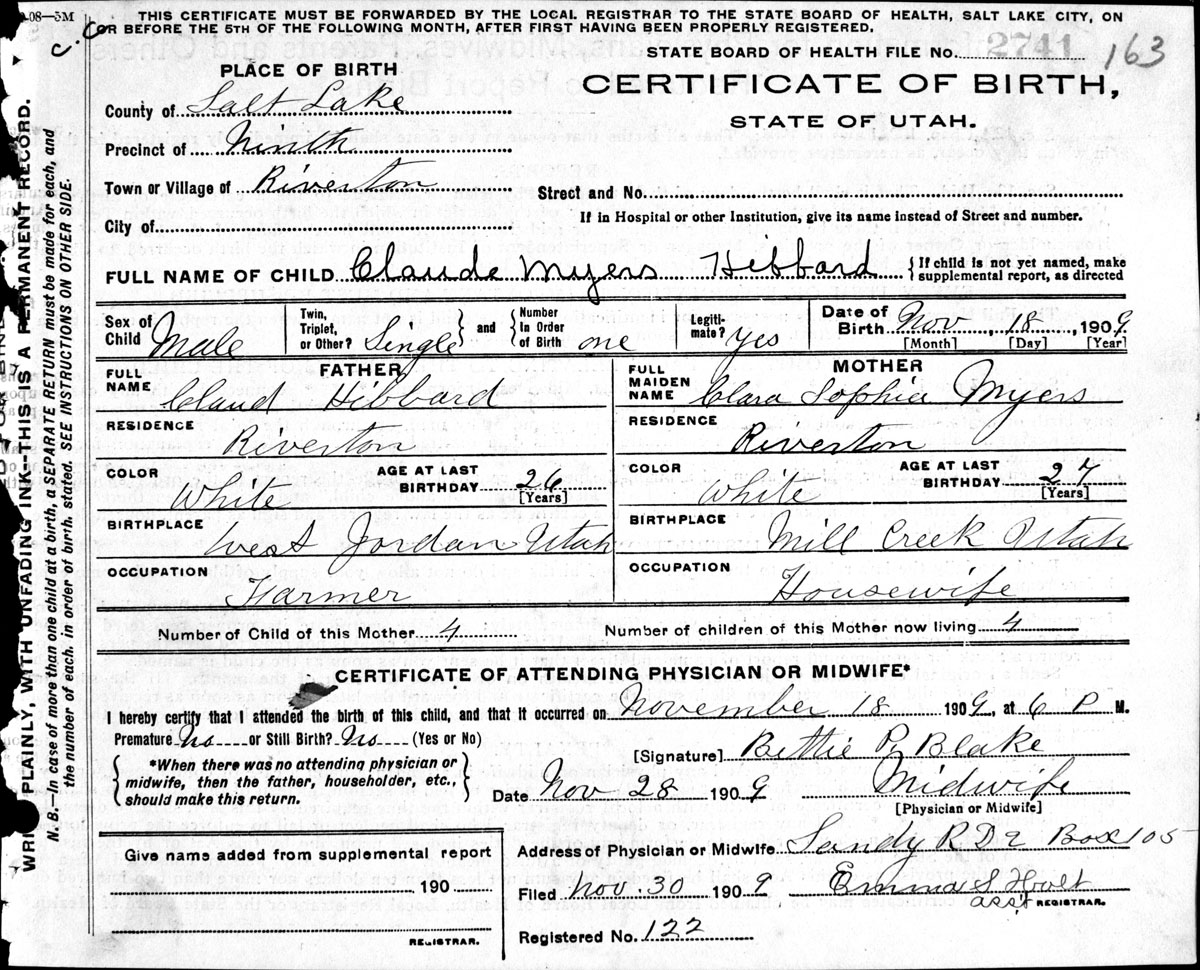 08—5M
THIS CERTIFICATE MUST BE FORWARDED BY THE LOCAL REGISTRAR TO THE STATE BOARD OF HEALTH, SALT LAKE CITY, ON
OR BEFORE THE 5TH OF THE FOLLOWING MONTH, AFTER FIRST HAVING BEEN PROPERLY REGISTERED,
STATE BOARD OF HEALTH FILE NO. 2741 163
PLACE OF BIRTH
CERTIFICATE OF BIRTH,
STATE OF UTAH.
County of Salt Lake
Precinct of Ninth
Town or Village of Riverton
Street and No.
If in Hospital or other Institution, give its name instead of Street and number.
City of
FULL NAME OF CHILD Claude Myers Hibbard {If child is not yet named, make supplemental report, as directed
Sex of Child Male Twin, Triplet, or Other? Single } and { Number in Order of Birth one Legitimate? Yes Date of Birth Nov, 18, 1909
[Month] [Day] [Year]
FATHER
FULL NAME Claud Hibbard
RESIDENCE Riverton
COLOR White AGE AT LAST BIRTHDAY 26 [Years]
BIRTHPLACE West Jordan Utah
OCCUPATION Farmer
MOTHER
FULL MAIDEN NAME Clara Sophia Myers
RESIDENCE Riverton
COLOR White AGE AT LAST BIRTHDAY 27 [Years]
BIRTHPLACE Mill Creek Utah
OCCUPATION Housewife
Number of Child of this Mother 4 Number of children of this Mother now living 4
CERTIFICATE OF ATTENDING PHYSICIAN OR MIDWIFE*
I hereby certify that I attended the birth of this child, and that it occurred on November 18 1909, at 6 P M.
Premature No or Still Birth? No (Yes or No)
{*When there was no attending physician or midwife, then the father, householder, etc., should make this return.}
[Signature] Bettie P. Blake
Date Nov 28 1909 Midwife
[Physician or Midwife]
Give name added from supplemental report
190
REGISTRAR.
Address of Physician or Midwife Sandy R D 2 Box 105
Filed Nov. 30 1909 Emma S Holt
asst REGISTRAR.
Registered No. 122
WRITE PLAINLY, WITH UNFADING INK—THIS IS A PERMANENT RECORD.
N. B.—In case of more than one child at a birth, a SEPARATE RETURN must be made for each, and
the number of each, in order of birth, stated. SEE INSTRUCTIONS ON OTHER SIDE.